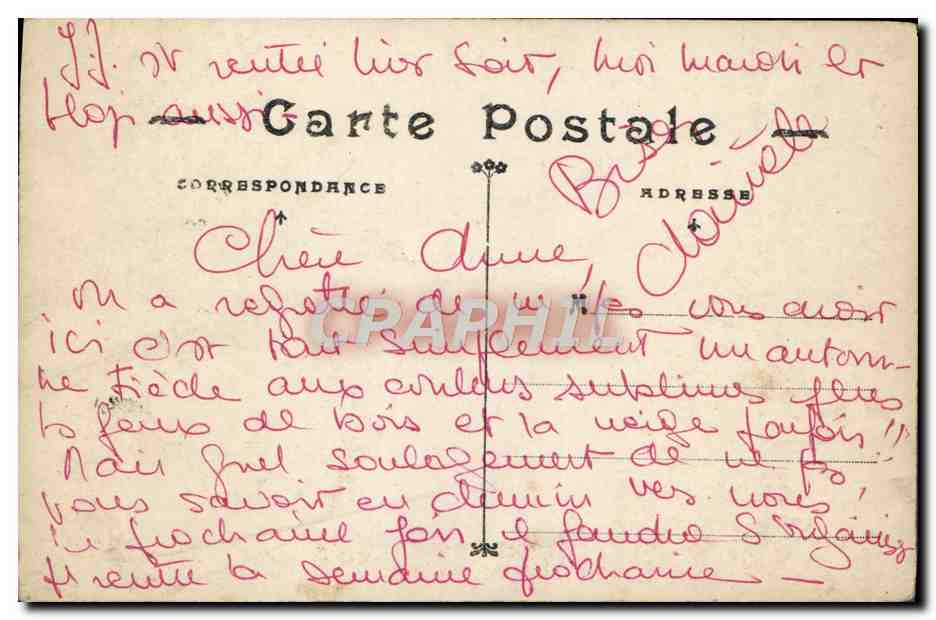 JJ. est rentré hier soir, moi mardi et
aussi
Carte Postale
CORRESPONDANCE
ADRESSE
Bises
Chère Anne,
on a regretté de ne pas vous avoir
CPAPHIL
ici c'est tout simplement un autom-
ne tiède aux couleurs sublimes
feux de bois et la neige parfois !!
Mais quel soulagement de ne pas
vous savoir en chemin vers nous,
prochaine fois il faudra s'organiser
rentre la semaine prochaine -